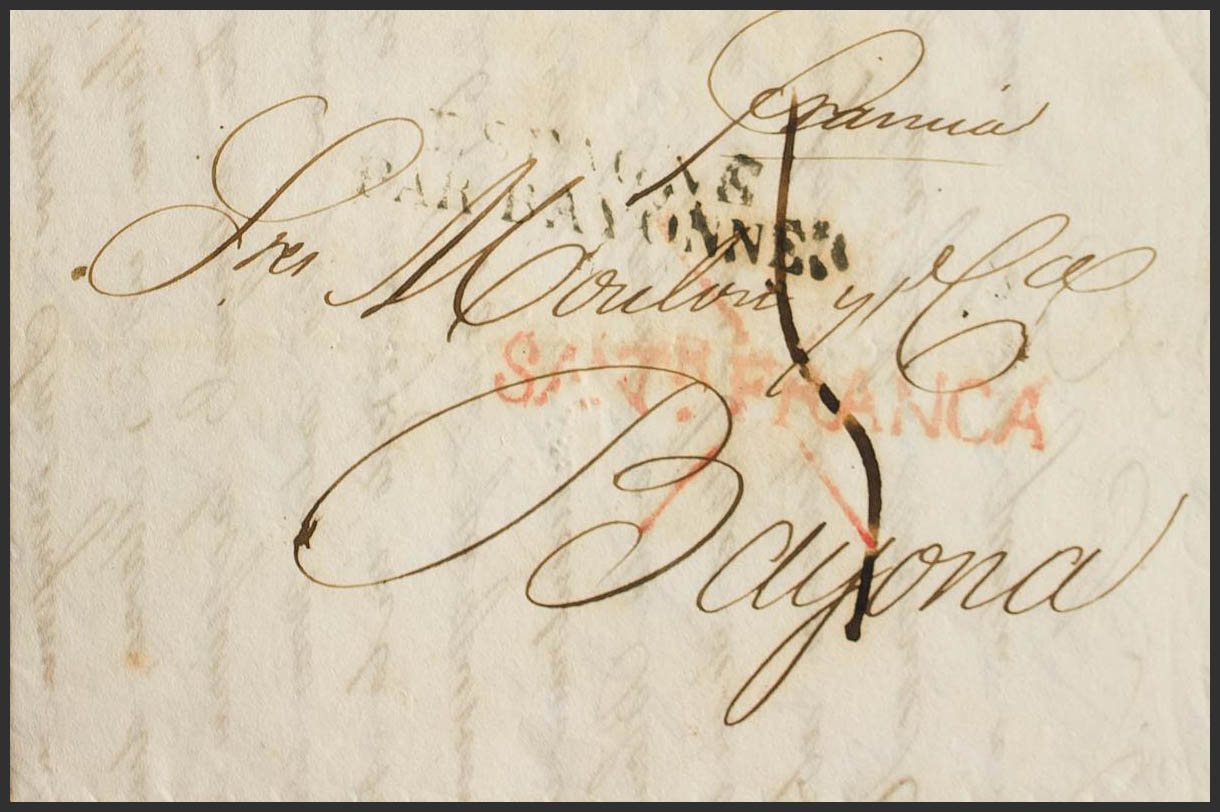 Francia
ESPAGNE
PAR BAYONNE
Sres Moulon y Ca
FRANCA
Bayona